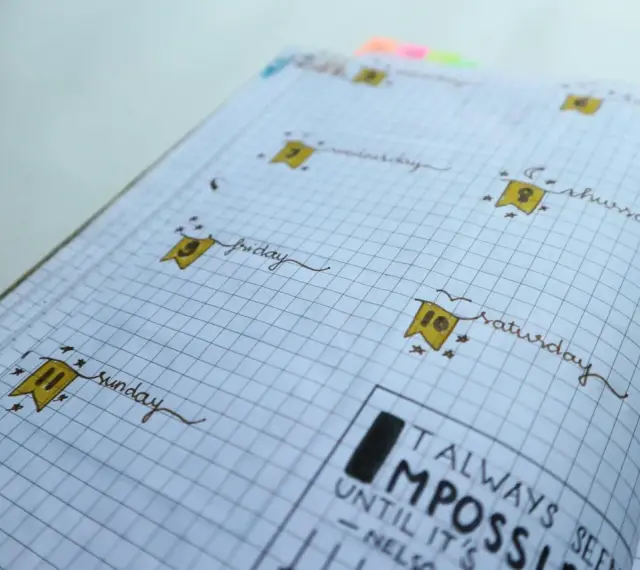 7 wednesday
8 thurs
9 friday
10 saturday
11 sunday
IT ALWAYS SEEM
IMPOSSI
UNTIL IT'S
—NELSO